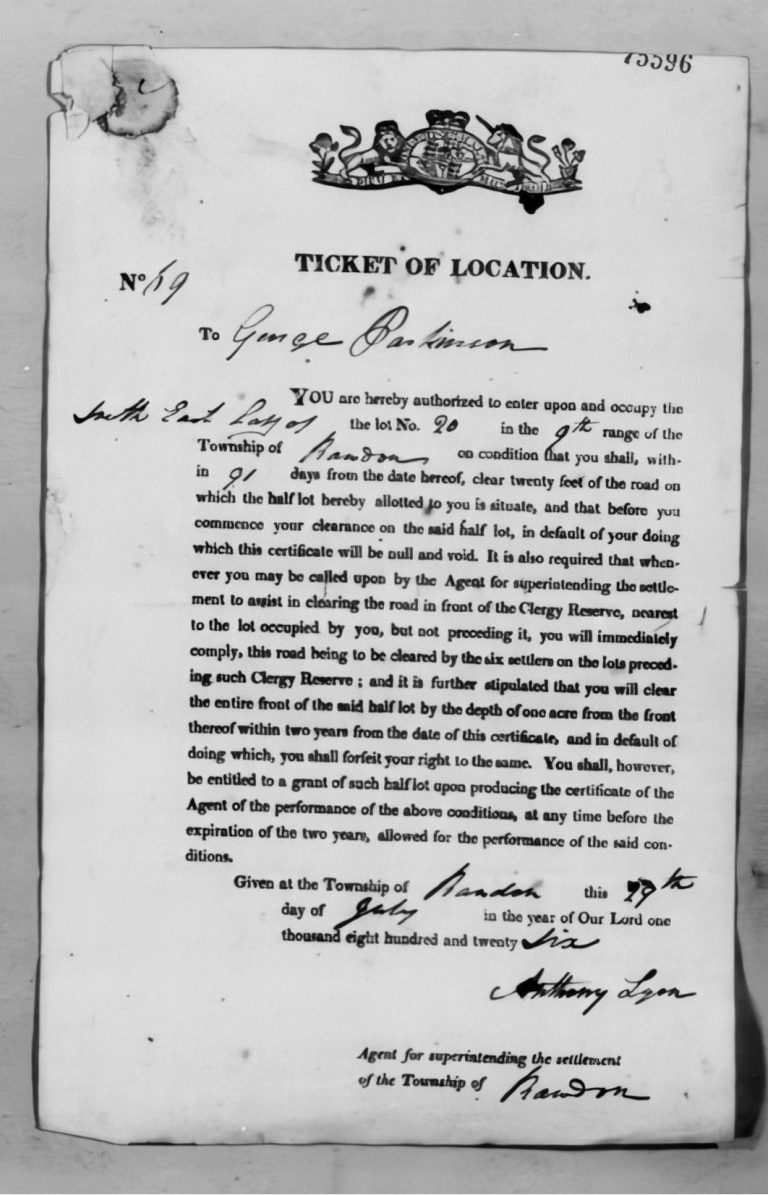 75596
TICKET OF LOCATION.
No 69
To George Parkinson
YOU are hereby authorized to enter upon and occupy the
South East half of the lot No. 20 in the 9th range of the
Township of Rawdon on condition that you shall, with-
in 91 days from the date hereof, clear twenty feet of the road on
which the half lot hereby allotted to you is situate, and that before you
commence your clearance on the said half lot, in default of your doing
which this certificate will be null and void. It is also required that when-
ever you may be called upon by the Agent for superintending the settle-
ment to assist in clearing the road in front of the Clergy Reserve, nearest
to the lot occupied by you, but not preceding it, you will immediately
comply, this road being to be cleared by the six settlers on the lots preced-
ing such Clergy Reserve ; and it is further stipulated that you will clear
the entire front of the said half lot by the depth of one acre from the front
thereof within two years from the date of this certificate, and in default of
doing which, you shall forfeit your right to the same. You shall, however,
be entitled to a grant of such half lot upon producing the certificate of the
Agent of the performance of the above conditions, at any time before the
expiration of the two years, allowed for the performance of the said con-
ditions.
Given at the Township of Rawdon this 29th
day of July in the year of Our Lord one
thousand eight hundred and twenty Six
Anthony Lyon
Agent for superintending the settlement
of the Township of Rawdon